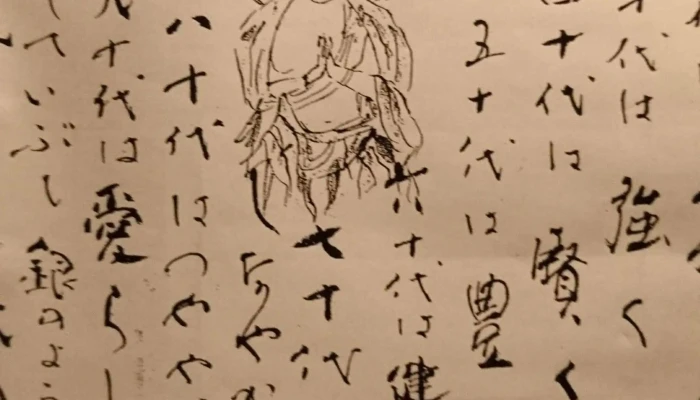 十代は 強く
十代は 賢く
五十代は 豊
六十代は 健
七十代
なごやか
八十代はつやや
九十代は愛らし
ていぶし銀のよう